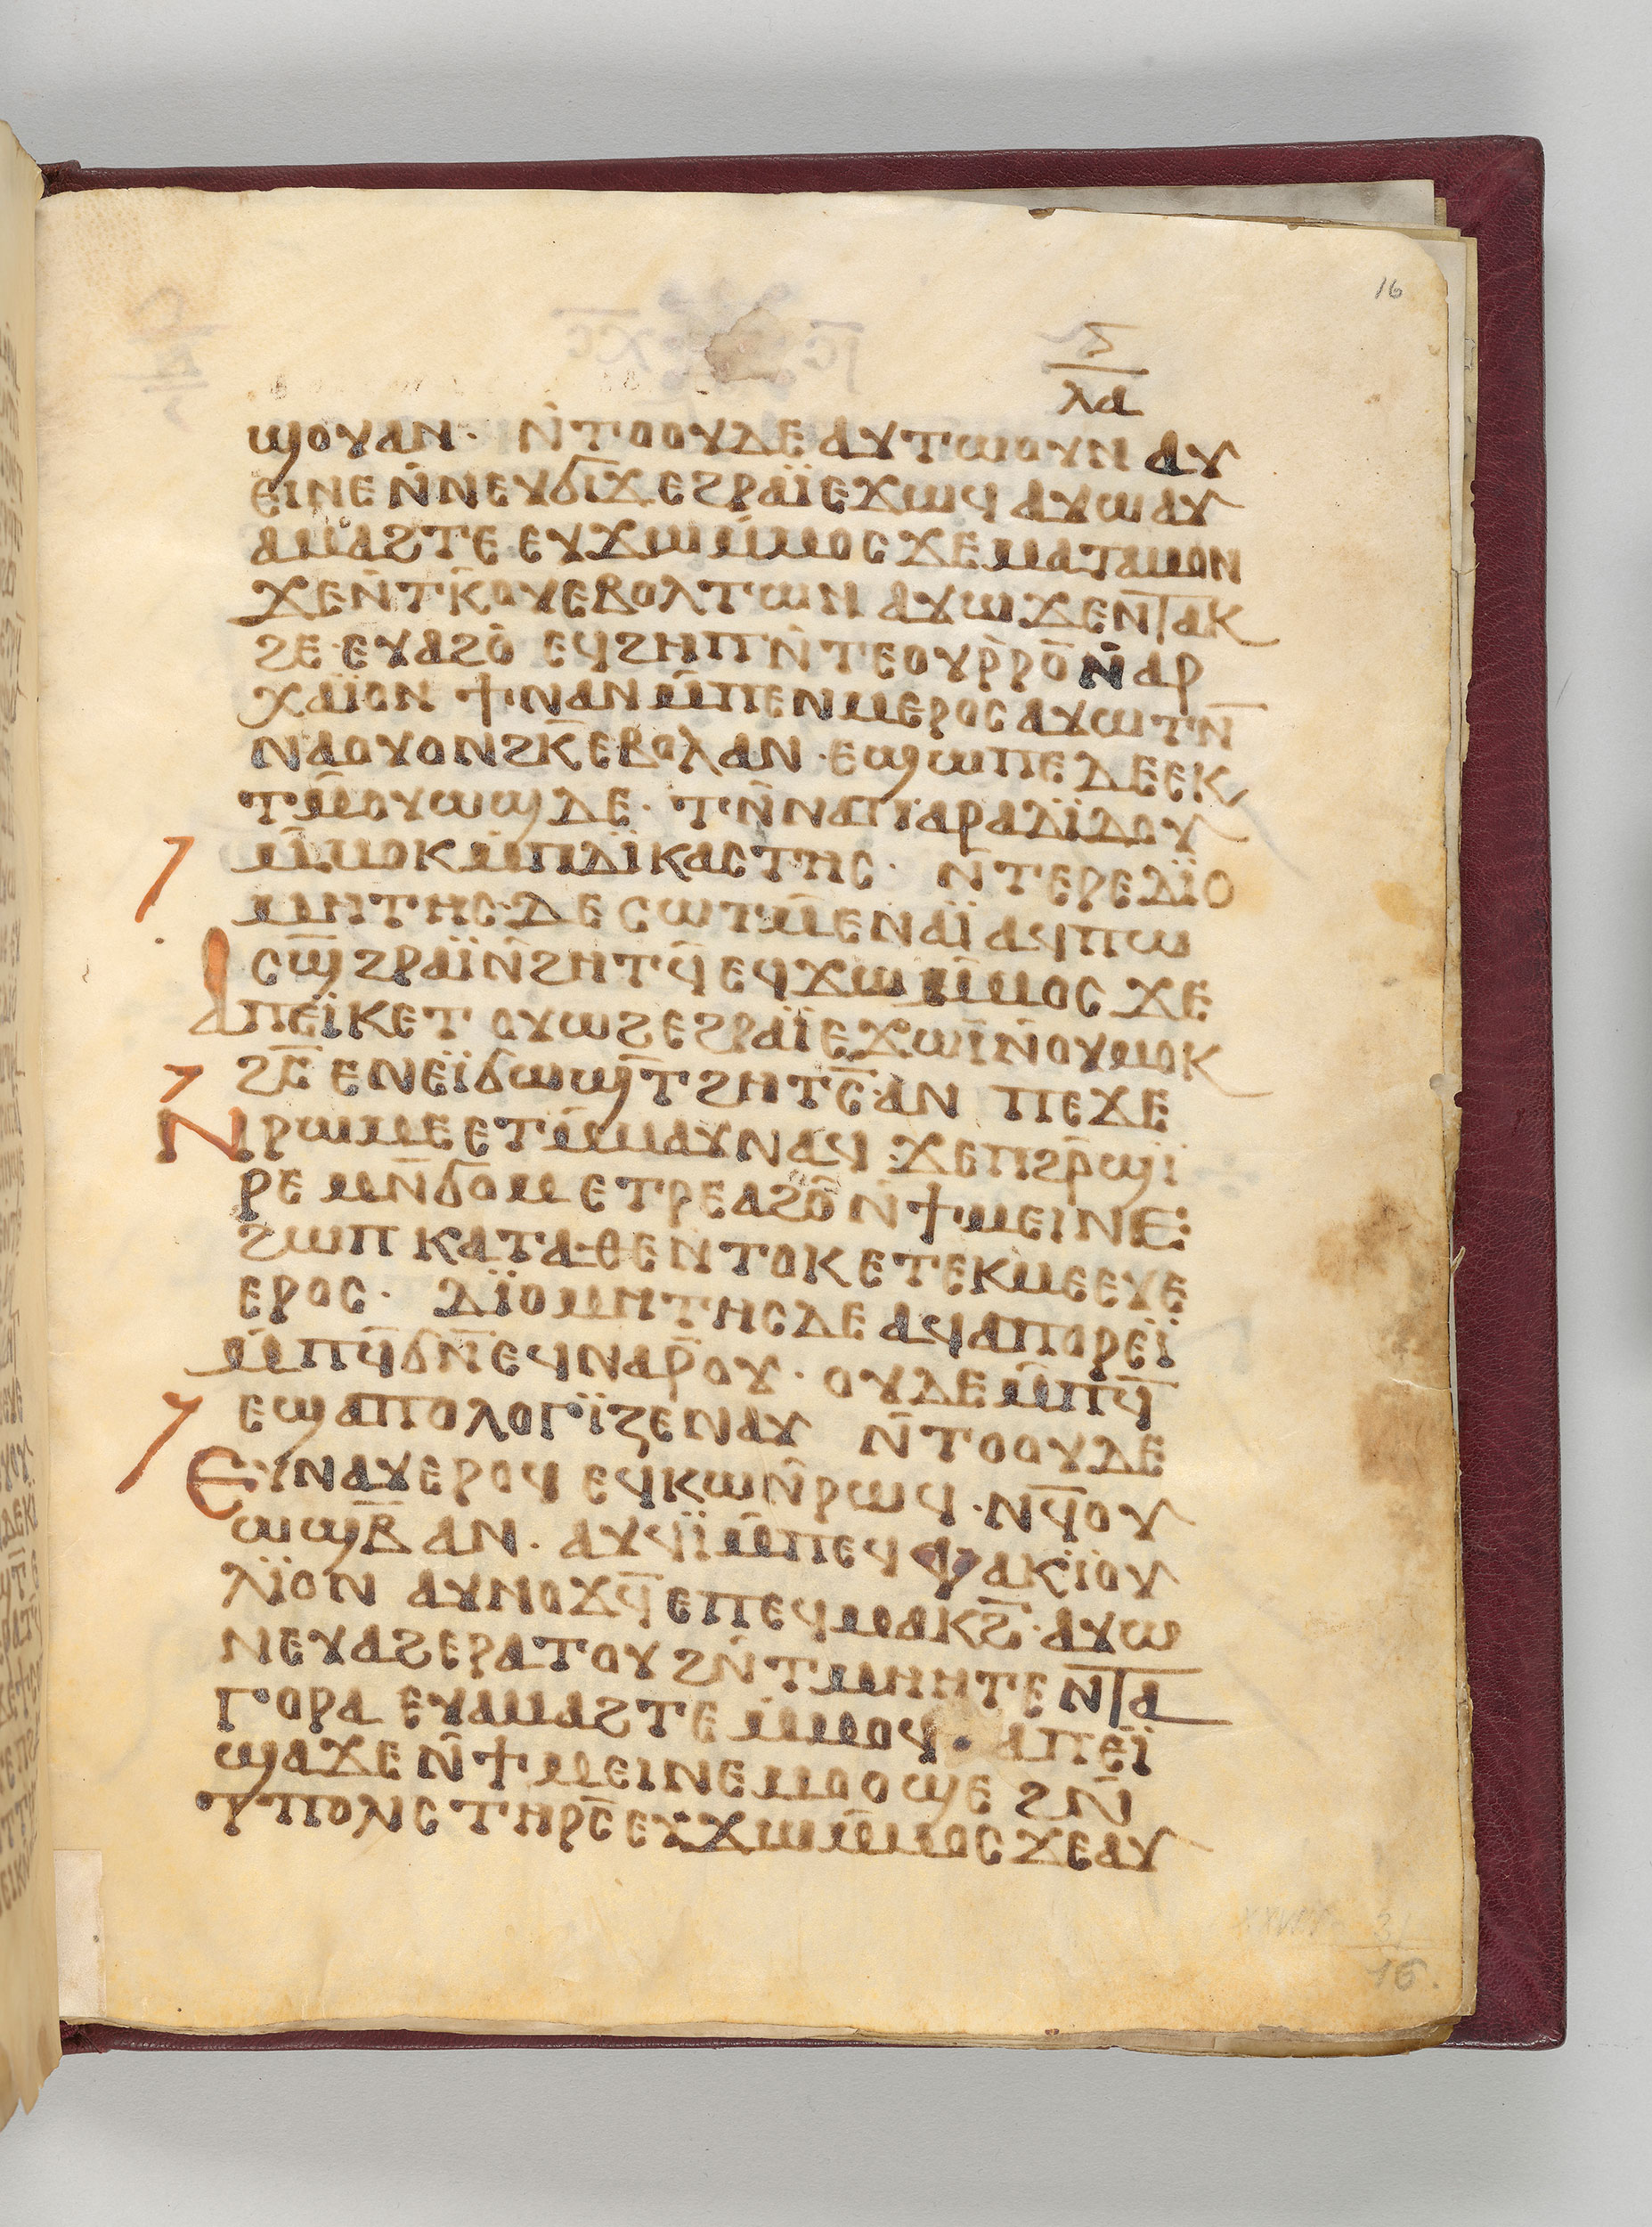 16
ⲋ
ⲗⲁ
ϣⲟⲩⲁⲛ· ⲛ̄ⲧⲟⲟⲩⲇⲉⲁⲩⲧⲱⲟⲩⲛ ⲁⲩ
ⲉⲓⲛⲉⲛ̄ⲛⲉⲩϭⲓϫⲉϩⲣⲁⲓ̈ⲉϫⲱϥ ⲁⲩⲱⲁⲩ
ⲁⲙⲁϩⲧⲉ ⲉⲩϫⲱⲙ̄ⲙⲟⲥ ϫⲉⲙⲁⲧⲁⲙⲟⲛ
ϫⲉⲛ̄ⲧⲕ̄ⲟⲩⲉⲃⲟⲗⲧⲱⲛ ⲁⲩⲱϫⲉⲛ̄ⲧⲁⲕ
ϩⲉ·ⲉⲩⲁϩⲟ ⲉϥϩⲏⲡⲛ̄ⲧⲉⲟⲩⲣ̄ⲣⲟ ⲛ̄ⲁⲣ
ⲭⲁⲓ̈ⲟⲛ ϯⲛⲁⲛⲙ̄ⲡⲉⲛⲙⲉⲣⲟⲥⲁⲩⲱⲧⲛ̄
ⲛⲁⲟⲩⲟⲛϩⲕ̄ⲉⲃⲟⲗⲁⲛ·ⲉϣⲱⲡⲉⲇⲉⲉⲕ
ⲧⲙ̄ⲟⲩⲱϣⲇⲉ· ⲧⲛ̄ⲛⲁⲡⲁⲣⲁⲇⲓ̈ⲇⲟⲩ
ⲙ̄ⲙⲟⲕⲙ̄ⲡⲇⲓ̈ⲕⲁⲥⲧⲏⲥ· ⲛ̄ⲧⲉⲣⲉⲇⲓ̈ⲟ
ⲙⲏⲧⲏⲥ·ⲇⲉ ⲥⲱⲧⲙ̄ⲉⲛⲁⲓ̈ ⲁϥⲡⲱ
ⲥϣ̄ϩⲣⲁⲓ̈ⲛ̄ϩⲏⲧϥ̄ ⲉϥϫⲱⲙ̄ⲙⲟⲥ ϫⲉ
ⲁⲡⲉⲓ̈ⲕⲉⲧ ⲟⲩⲱϩⲉϩⲣⲁⲓ̈ⲉϫⲱⲓ̈ⲛ̄ⲟⲩⲙⲟⲕ
ϩⲥ̄ ⲉⲛⲉⲓ̈ϭⲱϣⲧ̄ϩⲏⲧⲥ̄·ⲁⲛ ⲡⲉϫⲉ
ⲛⲣⲱⲙⲉⲉⲧⲙ̄ⲙⲁⲩⲛⲁϥ·ϫⲉⲡϩⲣ̄ϣⲓ
ⲣⲉ ⲙⲛ̄ϭⲟⲙ ⲉⲧⲣⲉⲁϩⲟⲛ̄ϯⲙⲉⲓⲛⲉ:
ϩⲱⲡ ⲕⲁⲧⲁ·ⲑⲉⲛⲧⲟⲕ ⲉⲧⲉⲕⲙⲉⲉⲩⲉ
ⲉⲣⲟⲥ· ⲇⲓ̈ⲟⲙⲏⲧⲏⲥⲇⲉ ⲁϥⲁⲡⲟⲣⲉⲓ̈
ⲙ̄ⲡϥ̄ϭⲛ̄ⲉϥⲛⲁⲣ̄ⲟⲩ· ⲟⲩⲇⲉⲙ̄ⲡϥ̄
ⲉϣⲁⲡⲟⲗⲟⲅⲓ̈ⲍⲉⲛⲁⲩ ⲛ̄ⲧⲟⲟⲩⲇⲉ
ⲉⲩⲛⲁⲩⲉⲣⲟϥ ⲉϥⲕⲱⲛ̄ⲣⲱϥ·ⲛϥ̄ⲟⲩ
ⲱϣⲃ̄ ⲁⲛ· ⲁⲩϥⲓ̈ⲙ̄ⲡⲉϥ ⲫⲁⲕⲓ̈ⲟⲩ
ⲗⲓ̈ⲟⲛ ⲁⲩⲛⲟϫϥ̄ⲉⲡⲉϥⲙⲁⲕϩ̄·ⲁⲩⲱ
ⲛⲉⲩⲁϩⲉⲣⲁⲧⲟⲩ ϩⲛ̄ⲧⲙⲏⲏⲧⲉⲛ̄ⲧⲁ
ⲅⲟⲣⲁ ⲉⲩⲁⲙⲁϩⲧⲉ ⲙ̄ⲙⲟϥ· ⲁⲡⲉⲓ̈
ϣⲁϫⲉ ⲛ̄ϯⲙⲉⲓⲛⲉⲙⲟⲟϣⲉ ϩⲛ̄
ⲧⲡⲟⲗⲓⲥ ⲧⲏⲣⲥ̄ⲉⲩϫⲱⲙ̄ⲙⲟⲥ ϫⲉⲁⲩ
31
16.